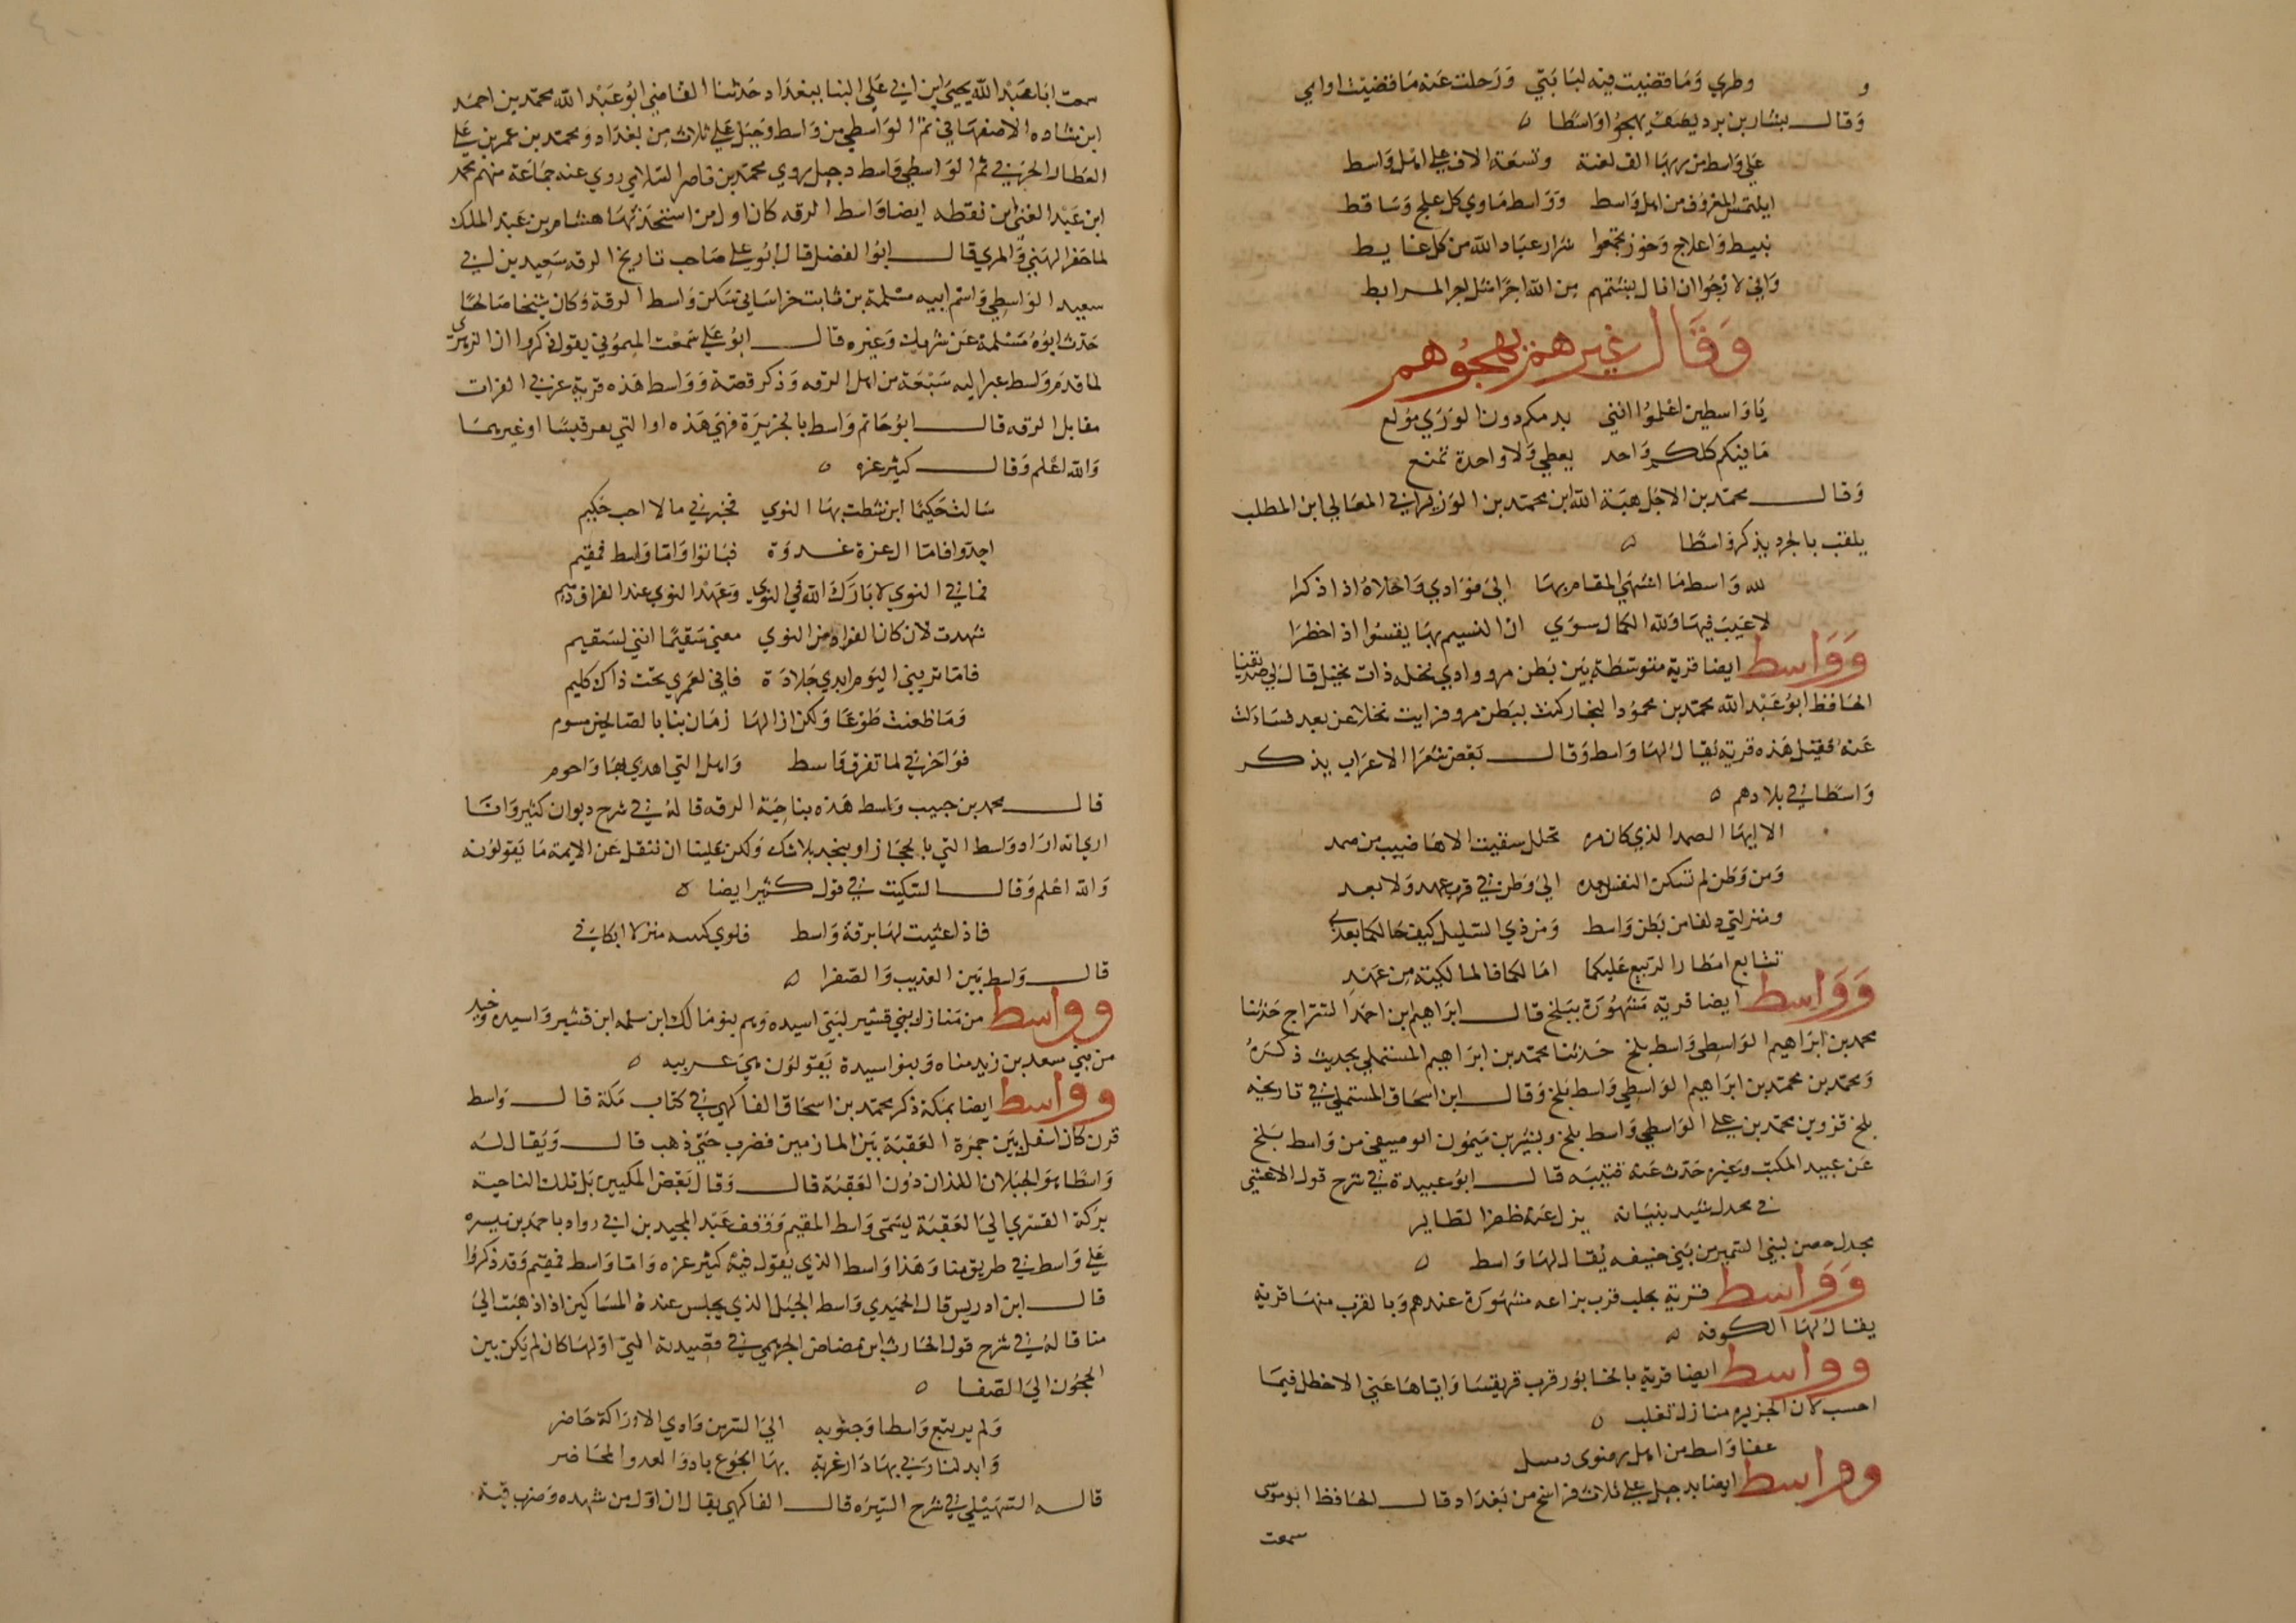 وطري وما قضيت فيه لبانتي ورحلت عنه ما قضيت اوامي
وقال بشار بن برد يهجوا واسطا
علي واسط من ربها الف لعنة وتسعة الاف علي اهل واسط
ايلتمس المعروف من اهل واسط وواسط ماوي كل علج وساقط
نبيط واعلاج وخوز تجمعوا شرار عباد الله من كل غايط
واني لارجوا ان انال بشتمهم من الله اجرا مثل اجر المرابط
وقال غيرهم يهجوهم
يا واسطين اعلموا انني بدمكم دون الوري مولع
ما فيكم كلكم واحد يعطي ولا واحدة تمنع
وقال محمد بن الاجل هبة الله ابن محمد بن الوزير ابي المعالي ابن المطلب
يلقب بالجرد يذكر واسطا
لله واسط ما اشهي المقام بها الي فوادي واحلاه اذا ذكرا
لا عيب فيها ولله الكمال سوي ان النسيم بها يفسوا اذا خطرا
وواسط ايضا قرية متوسطة بين بطن مر ووادي نخله ذات نخيل قال لي صديقنا
الحافظ ابو عبد الله محمد بن محمود النجار كنت ببطن مر فرايت نخلا عن بعد فسالت
عنه فقيل هذه قرية يقال لها واسط وقال بعض شعرا الاعراب يذكر
واسطا في بلادهم
الا ايها الصمد الذي كان مره تحلل سقيت الاهاضيب من صمد
ومن وطن لم تسكن النفس بعده الي وطن في قرب عهد ولا بعد
ومنزلتي دلفا من بطن واسط ومن ذي السليل كيف حالكما بعدي
تتابع امطار الربيع عليكما اما لكما بالمالكية من عهد
وواسط ايضا قرية مشهورة ببلخ قال ابراهيم ابن احمد السراج حدثنا
محمد بن ابراهيم الواسطي واسط بلخ حدثنا محمد بن ابراهيم المستملي بحديث ذكره
ومحمد بن محمد بن ابراهيم الواسطي واسط بلخ وقال ابن اسحاق المستملي في تاريخه
بلخ قزوين محمد بن علي الواسطي واسط بلخ وبشير بن ميمون ابو صيفي من واسط بلخ
عن عبيد المكتب وغيره حدث عنه قتيبه قال ابو عبيدة في شرح قول الاعشي
في مجدل شيد بنيانه يزل عنه ظفر الطاير
مجدل حصن لبني السمير من بني حنيفه يقال لها واسط
وواسط قرية بحلب قرب بزاعه مشهورة عندهم وبالقرب منها قرية
يقال لها الكوفه
وواسط ايضا قرية بالخابور قرب قرقيسا واياها عني الاخطل فيما
احسب لان الجزيره منازل تغلب
عفا واسط من اهل رضوي
وواسط ايضا بدجيل علي ثلاث فراسخ من بغداد قال الحافظ ابو موسي
سمعت
سمعت ابا عبد الله يحيي ابن ابي علي البنا ببغداد حدثنا القاضي ابو عبد الله محمد بن احمد
ابن شاده الاصفهاني ثم الواسطي من واسط دجيل علي ثلاث من بغداد ومحمد بن عمر بن علي
العطار الحربي ثم الواسطي واسط دجيل يروي محمد بن ناصر السلامي روي عنه جماعة منهم محمد
ابن عبد الغني ابن نقطه ايضا واسط الرقه كان اول من استحدثها هشام بن عبد الملك
لما حفر الهني والمري قال ابو الفضل قال ابو علي صاحب تاريخ الرقه سعيد بن ابي
سعيد الواسطي واسم ابيه مسلمة بن ثابت خراساني سكن واسط الرقة وكان شيخا صالحا
حدث ابوه مسلمة عن شريك وغيره قال ابو علي سمعت الميموني يقول ذكروا ان الزهري
لما قدم واسط عبر اليه سبعة من اهل الرقه وذكر قصة وواسط هذه قرية غربي الفرات
مقابل الرقه قال ابو حاتم واسط بالجزيرة فهي هذه او التي بقرقيسا او غيرهما
والله اعلم وقال كثير عزه
سالت حكيما اين شطت بها النوي فخبرني ما لا احب حكيم
اجدوا فاما ال عزة غدوة فبانوا واما واسط فمقيم
فما في النوي لا بارك الله في النوي وعهد النوي عند الفراق ذميم
شهدت لان كان الفواد من النوي معني سقيما انني لسقيم
فاما تريني اليوم ابدي جلادة فاني لعمري تحت ذاك كليم
وما ظعنت طوعا ولكن ازالها زمان بنا بالصالحين مشوم
فوا حزني لما تفرق واسط واهل التي اهدي بها واحوم
قال محمد بن حبيب واسط هذه بناحية الرقه قاله في شرح ديوان كثير وانا
اري انه اراد واسط التي بالحجاز او بنجد بلا شك ولكن علينا ان ننقل عن الايمة ما يقولونه
والله اعلم وقال السكيت في قول كثير ايضا
فاذا غشيت لها برقة واسط فلوي منزلا ابكاني
قال واسط بين العذيب والصفرا
وواسط من منازل بني قشير لبني اسيده وهم بنو مالك ابن سلمه ابن قشير واسيده وحيده
من بني سعد بن زيد مناه وبنو اسيدة يقولون هي عربيه
وواسط ايضا بمكة ذكر محمد بن اسحاق الفاكهي في كتاب مكة قال واسط
قرن كان اسفل بين جمرة العقبة بين المازمين فضرب حتي ذهب قال ويقال له
واسطا هو الجبلان اللذان دون العقبة قال وقال بعض المكيين بل تلك الناحية
بركة القسري الي العقبة يسمي واسط المقيم ووقف عبد المجيد بن ابي رواد باحمد بن ميسره
علي واسط في طريق منا وهذا واسط الذي يقول فيه كثير عزه واما واسط فمقيم وقد ذكروا
قال ابن ادريس قال الحميدي واسط الجبل الذي يجلس عنده المساكين اذا ذهبت الي
منا قاله في شرح قول الحارث ابن مضاض الجرهمي في قصيدته التي اولها كان لم يكن بين
الحجون الي الصفا
ولم يربع واسطا وجنوبه الي السر من وادي الاراكة حاضر
وابدلنا ربي بها دار غربة بها الجوع باد والعدو المحاضر
قاله السهيلي في شرح السيره قال الفاكهي يقال ان اول من شهده وضرب فيه قبة